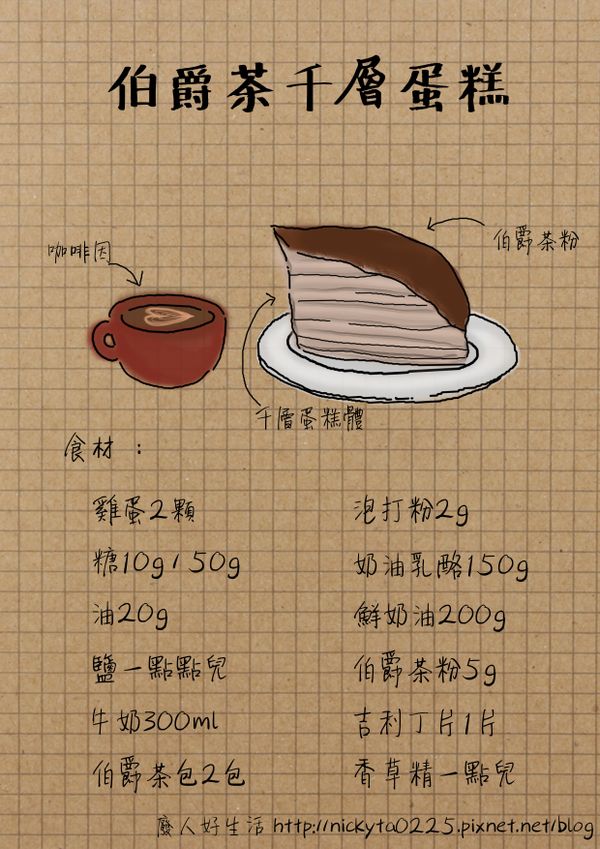 伯爵茶千層蛋糕
咖啡因
伯爵茶粉
千層蛋糕體
食材：
雞蛋2顆
泡打粉2g
糖10g/50g
奶油乳酪150g
油20g
鮮奶油200g
鹽一點點兒
伯爵茶粉5g
牛奶300ml
吉利丁片1片
伯爵茶包2包
香草精一點兒
廢人好生活 http://nickyta0225.pixnet.net/blog